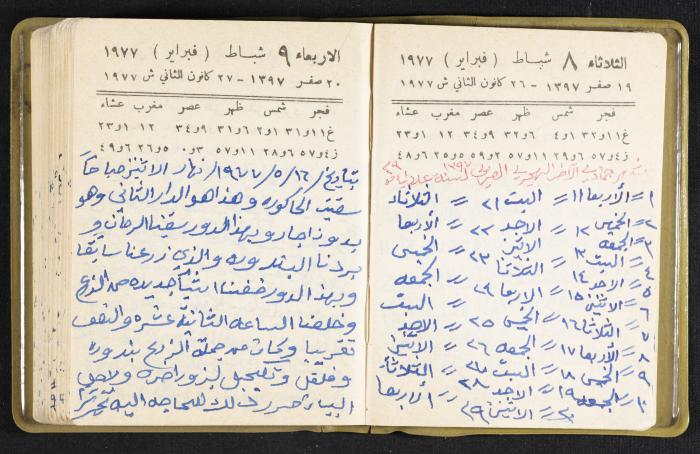 الثلاثاء ٨ شباط ( فبراير ) ١٩٧٧
١٩ صفر ١٣٩٧ - ٢٦ كانون الثاني ش ١٩٧٧
فجر شمس ظهر عصر مغرب عشاء
غ ١١و٣٢ ١و٤ ٦و٣٢ ٩و٣٤ ١٢ ١و٢٣
ز ٤و٥٧ ٦و٢٩ ١١و٥٧ ٢و٥٩ ٥و٢٥ ٦و٤٨
١ = الأربعا ١١ = السبت ٢١ = الثلاثاء
٢ = الخميس ١٢ = الاحد ٢٢ = الأربعا
٣ = الجمعه = الاثنين ٢٣ = الخميس
٤ = السبت = الثلاثا = الجمعه
٥ = الاحد ١٤ = الاربعا = السبت
٦ = الاثنين ١٥ = الخميس ٢٥ = الاحد
٧ = الثلاثا ١٦ = الجمعه ٢٦ = الاثنين
٨ = الأربعا ١٧ = السبت = الثلاثاء
٩ = الخميس ١٨ = الاحد ٢٨ = الأربعا
١٠ = الجمعه ١٩ = الاثنين ٢٩
٢٠ =
الاربعاء ٩ شباط ( فبراير ) ١٩٧٧
٢٠ صفر ١٣٩٧ - ٢٧ كانون الثاني ش ١٩٧٧
فجر شمس ظهر عصر مغرب عشاء
غ ١١و٣١ ١و٢ ٦و٣١ ٩و٣٤ ١٢ ١و٢٣
ز ٤و٥٧ ٦و٢٨ ١١و٥٧ ٣و٠ ٥و٢٦ ٦و٤٩
بتاريخ /١٦/ ٥/ ١٩٧٧ نهار الاثنين صباحاً
سقيت الحاكوره وهذا هو الدار الثاني وهو
بدون اجار وبهذا الدور سقينا الرمان و
بردنا البندوره والذي زرعنا سابقا
وبهذا الدور ضفنا اشيأ جديده من الزرع
وخلصنا الساعه الثانية عشره والنصف
تقريبا وكان من جملة الزرع بندوره
وفلفل و لبزور اخره
البيار